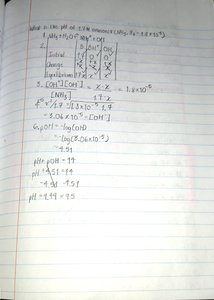 What is the pH of 1.7 M ammonia (NH₃, Kb = 1.8 x 10⁻⁵)
1. NH₃ + H₂O ⇌ NH₄⁺ + OH
2.
B OH⁻ OH
Initial 1.7 0 0
Change -x x x
Equilibrium 1.7-x x x
3. [OH⁻][OH⁻] = x·x = 1.8 x 10⁻⁵
[NH₃] 1.7-x
x² / 1.7 = 1.8 x 10⁻⁵ · 1.7
= 3.06 x 10⁻⁵ = [OH⁻]
6. pOH = -log(OH)
= -log(3.06 x 10⁻⁵)
= 4.51
pH + pOH = 14
pH + 4.51 = 14
-4.51 -4.51
pH = 9.49 = 9.5